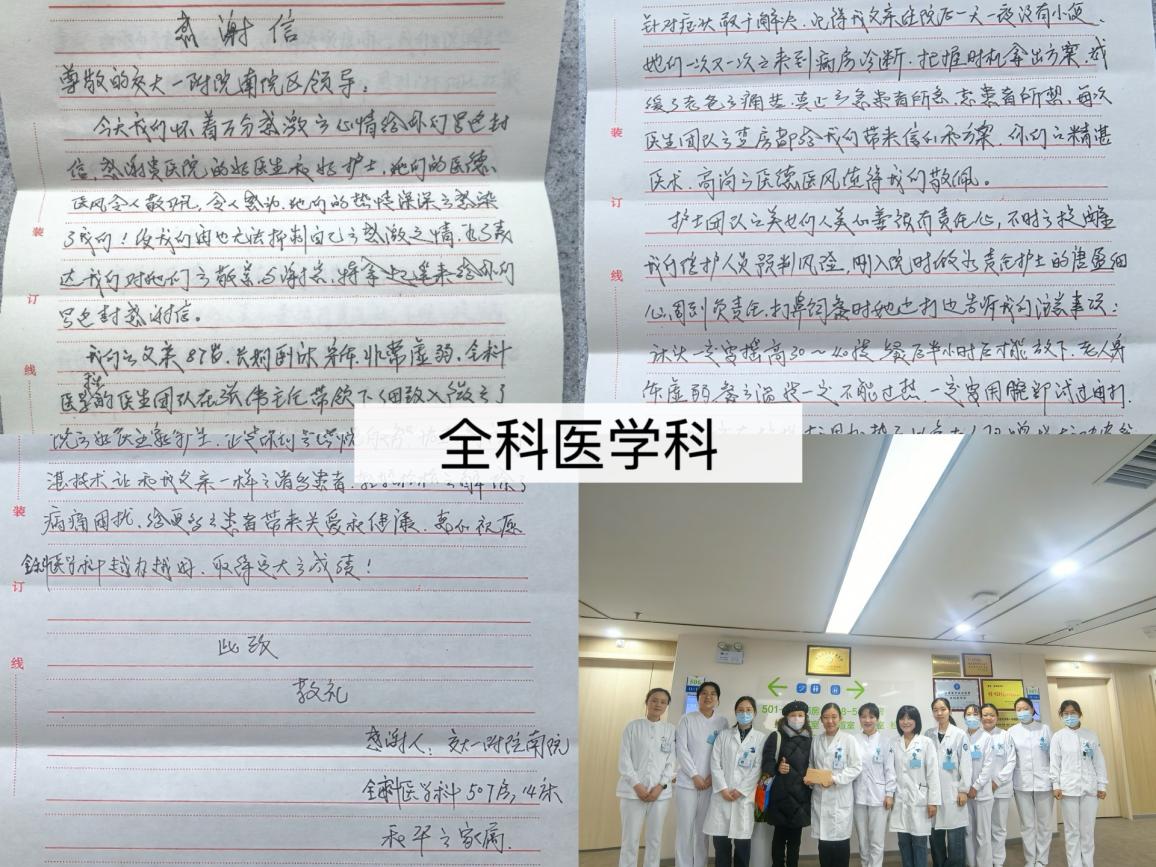 感谢信
尊敬的交大一附院南院区领导：
今天我们怀着万分感激之心情给你们写这封
信，感谢贵医院的好医生和好护士，她们的医德、
医风令人敬佩，令人感动，她们的热情深深之感染
了我们！使我们再也无法抑制自己之感激之情，为了表
达我们对她们之敬意与谢意，特拿起笔来给你们
写这封感谢信。
我们之父亲87岁，长期卧床养病，非常虚弱，全科
医学科的医生团队在张伟主任带领下细致入微之了
装
订
线
针对症状敢于解决，记得我父亲住院后一天一夜没有小便，
她们一次又一次之来到病房诊断，把握时机拿出方案，减
缓了老爸之痛苦，真正之急患者所急，想患者所想，每次
医生团队之查房都给我们带来信心和方案，你们之精湛
医术，高尚之医德医风值得我们敬佩。
护士团队之美女们人美心善很有责任心，不时之提醒
我们陪护人员预判风险，刚入院时的责任护士的唐
心周到负责任，打鼻饲餐时她边打边告诉我们注意事项：
床头一定要摇高30～40度，餐后半小时后才能放下，老人身
体虚弱，餐之温度一定不能过热，一定要用腕部试过再打，
装
订
线
全科医学科
湛技术让和我父亲一样之诸多患者，
病痛困扰，给更多之患者带来关爱和健康，衷心祝愿
全科医学科越办越好，取得更大之成绩！
此致
敬礼
感谢人：交大一附院南院
全科医学科507房，14床
和平之家属.
装
订
线
501-